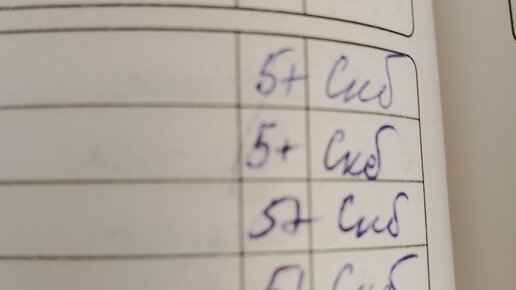 5+ Скб
5+ Скб
5+ Скб
5+ Скб